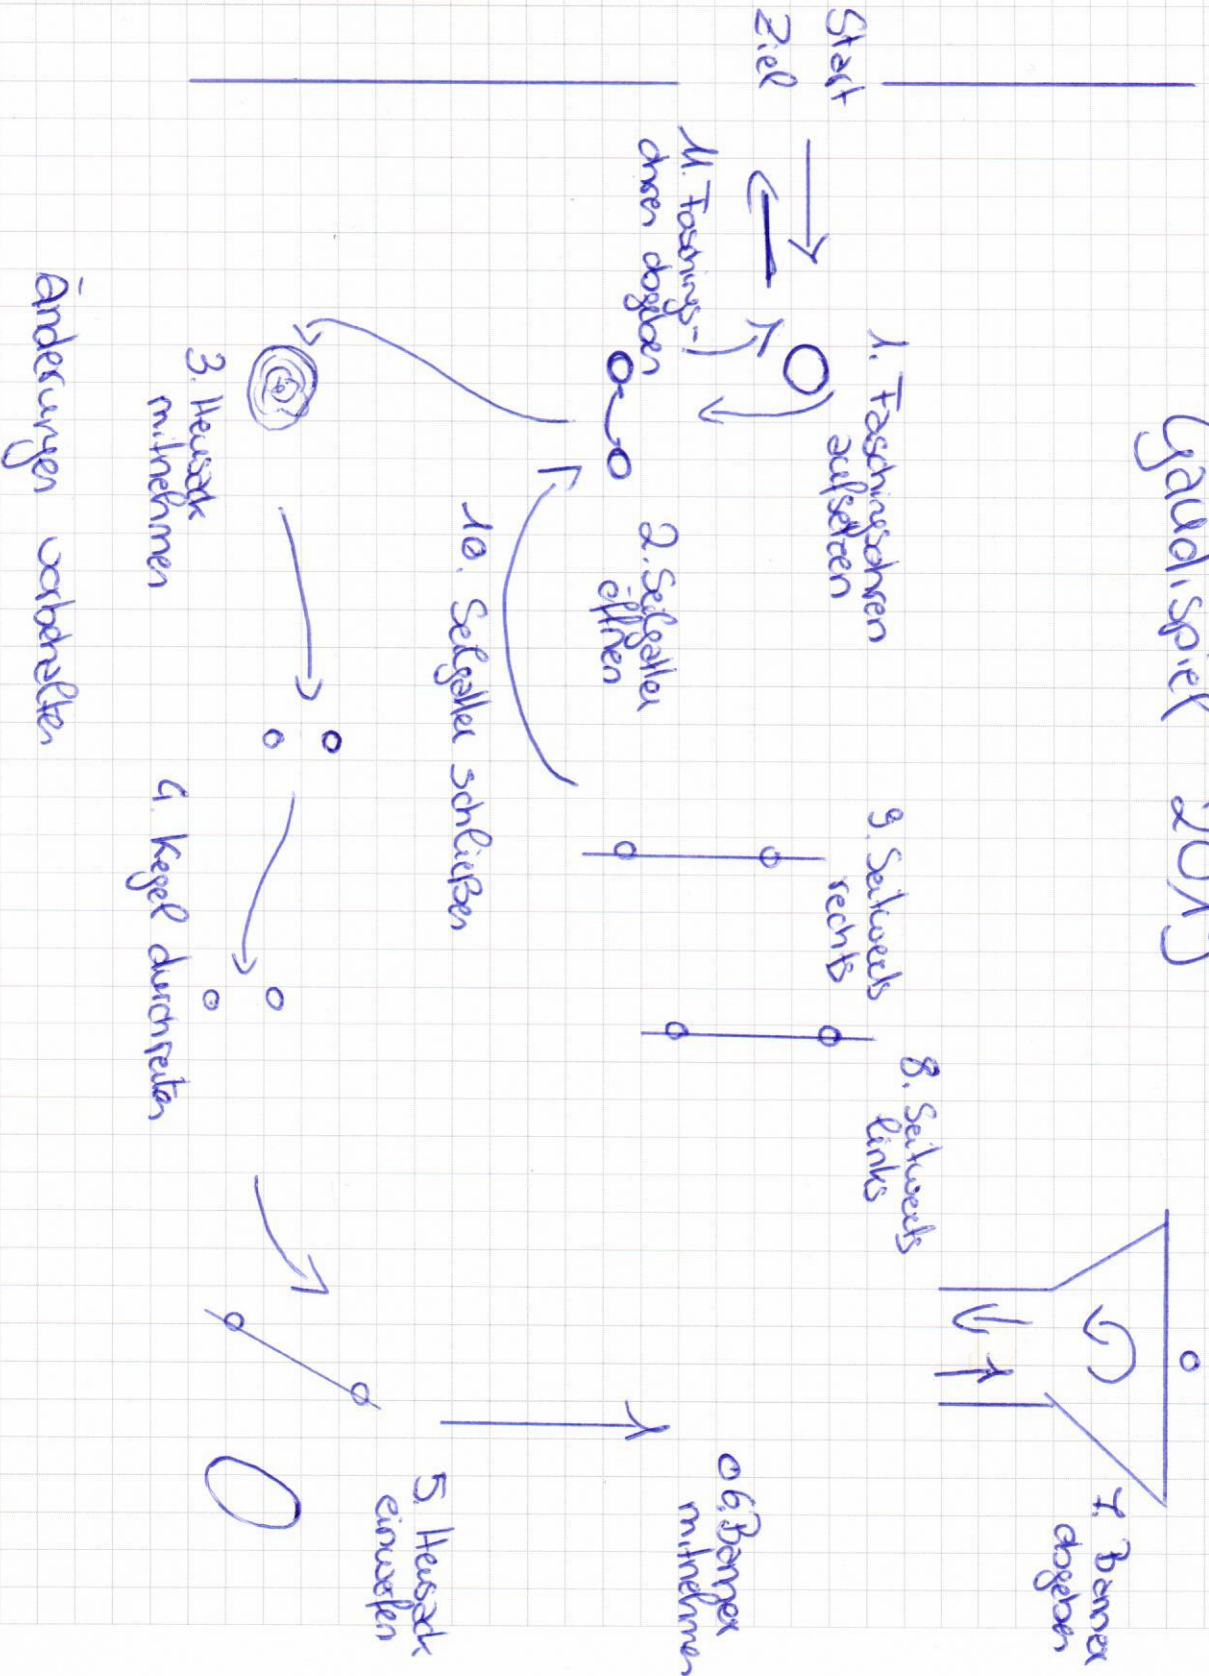 Gaudispiel 2019
Start
Ziel
1. Faschingsohren
aufsetzen
2. Seilgatter
öffnen
3. Heusack
mitnehmen
4. Kegel durchreiten
5. Heusack
einwerfen
6. Banner
mitnehmen
7. Banner
abgeben
8. Seitwärts
links
9. Seitwärts
rechts
10. Seilgatter schließen
11. Faschings-
ohren abgeben
Änderungen vorbehalten